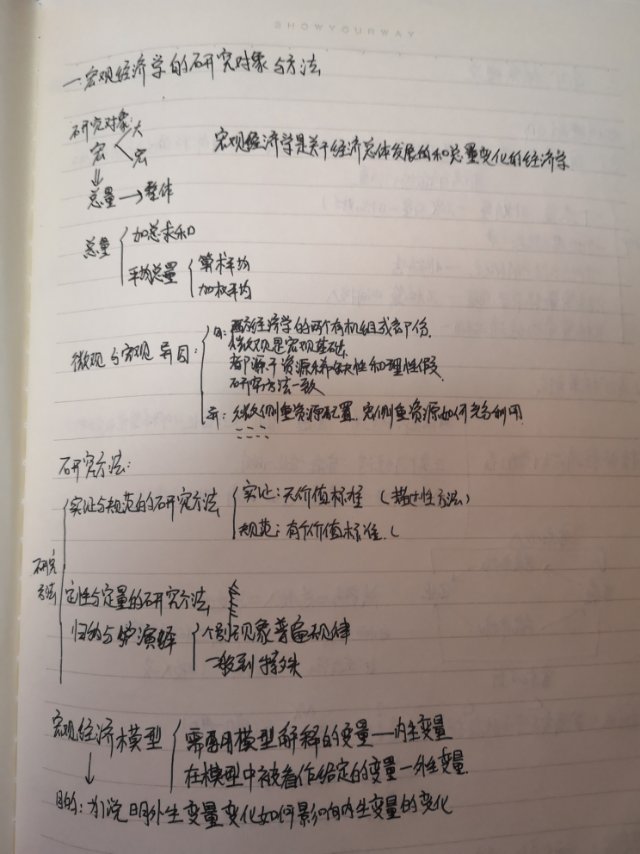 SHOWYOURWAY
一.宏观经济学的研究对象与方法
研究对象: 大
宏 < 宏
宏观经济学是关于经济总体发展的和总量变化的经济学
⇓
总量→整体
总量 { 加总求和
平均总量 { 算术平均
加权平均
微观与宏观 异同: { 同: 西方经济学的两个有机组成部份.
微观是宏观基础.
都源于资源稀缺性和理性假设
研究方法一致
异: 微侧重资源配置. 宏侧重资源如何充分利用
研究方法:
研究方法 { 实证与规范的研究方法 { 实证: 无价值标准 (描述性方法)
规范: 有价值标准. (
定性与定量的研究方法 {
归纳与演绎 { 个别现象 普遍规律
一般到特殊
宏观经济模型 { 需要用模型解释的变量—内生变量
在模型中被看作给定的变量—外生变量.
↓
目的: 为说明外生变量变化如何影响内生变量的变化